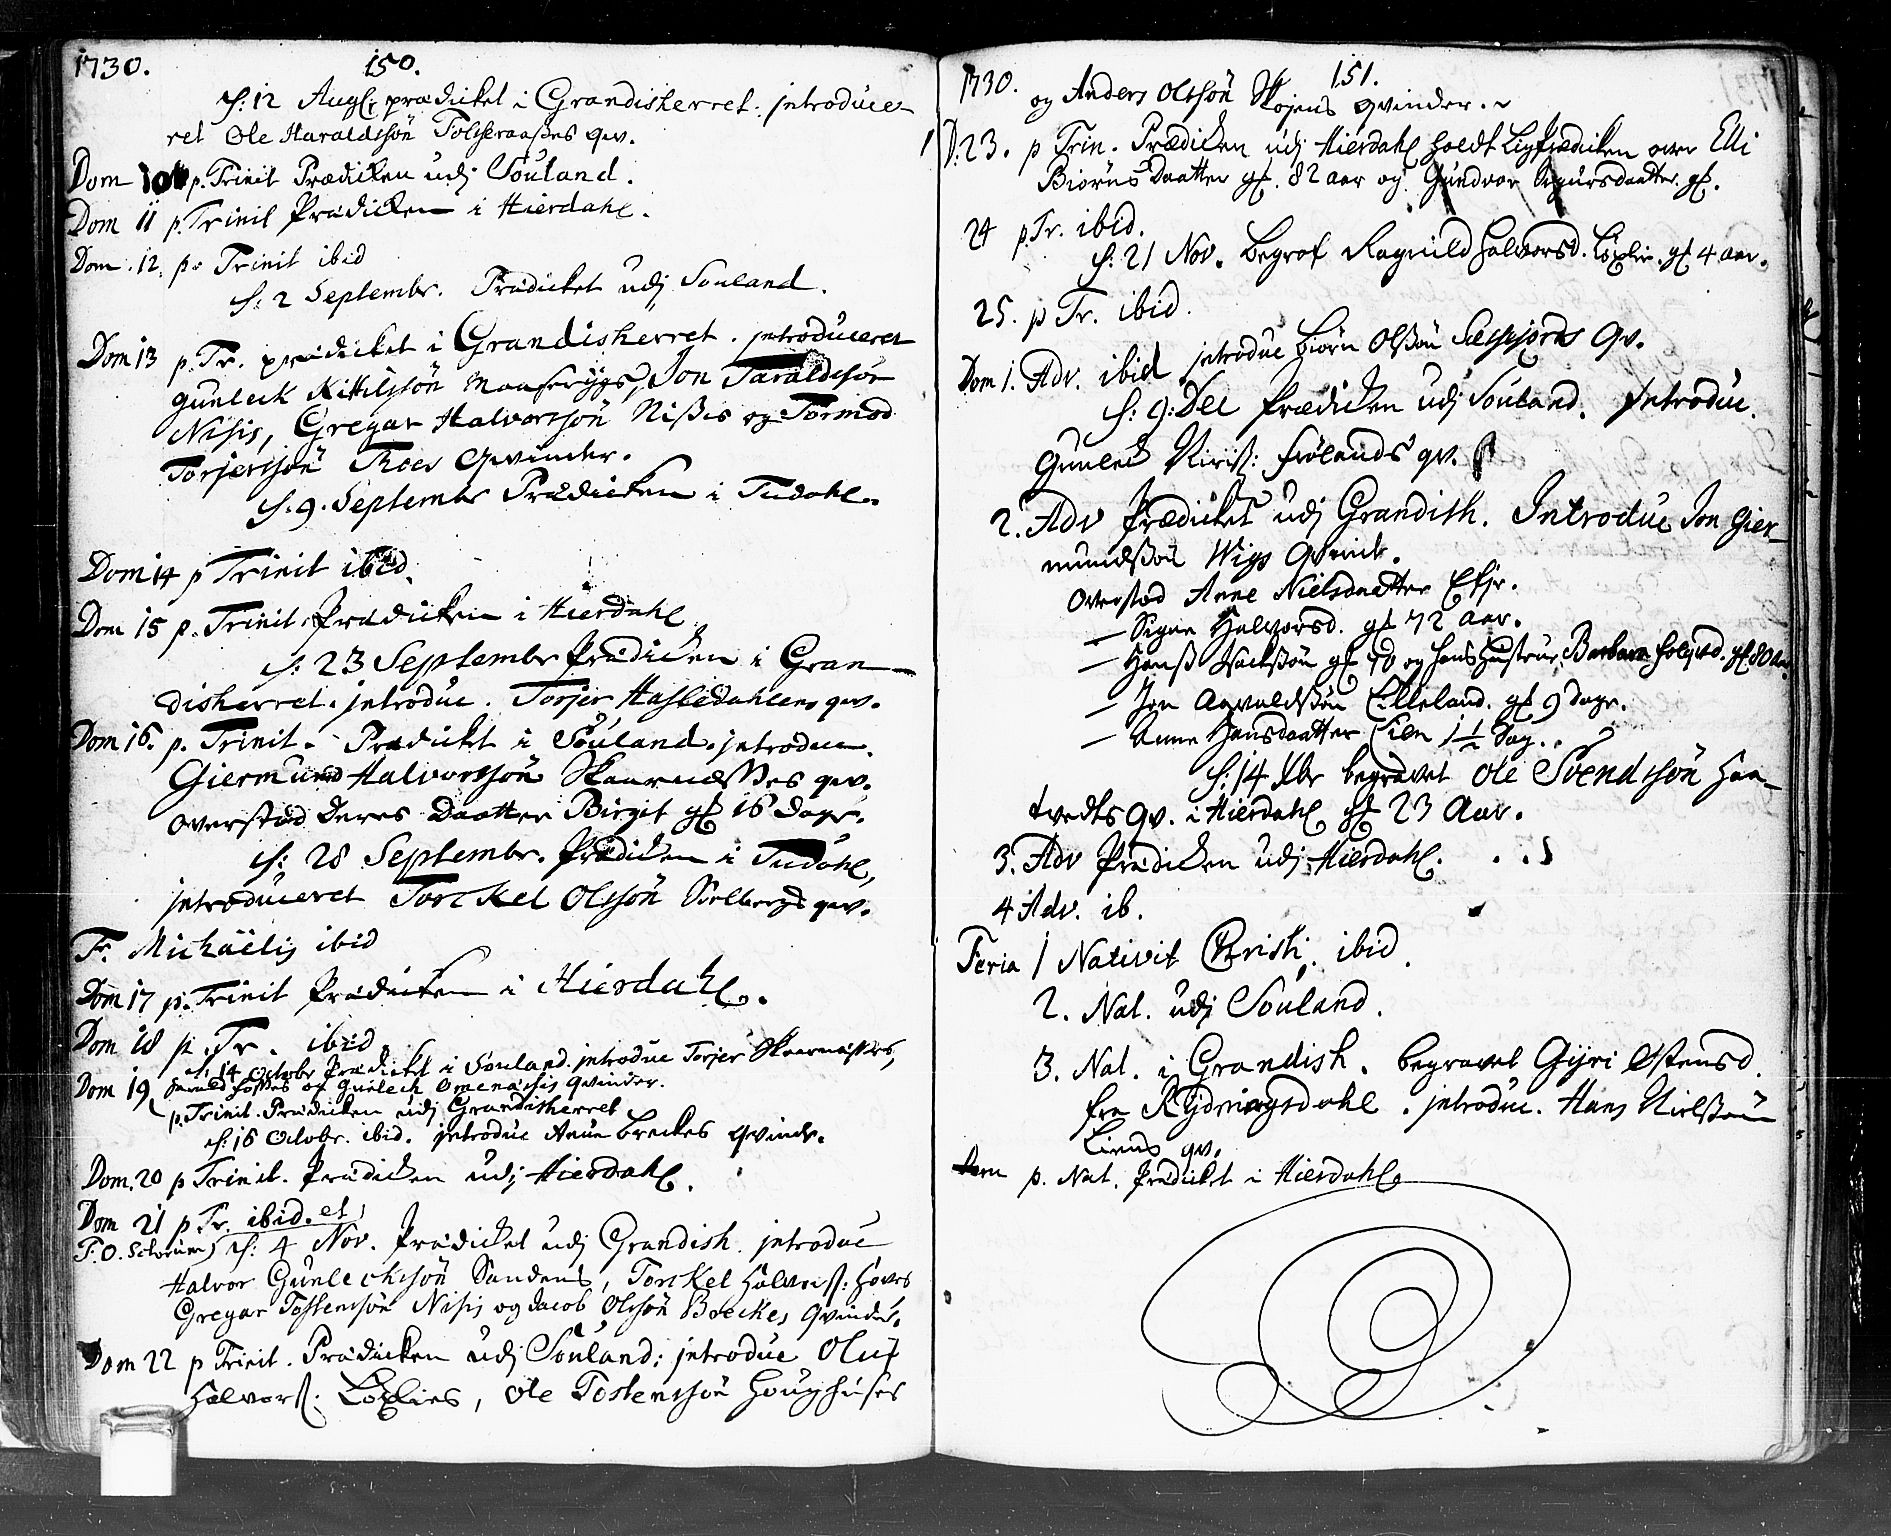 1730. 150.
d: 12 Aug. prædicket i Grandisherret. introduce
ret Ole Haraldssön qv.
Dom 10 p. Trinit Prædicken udj Souland.
Dom 11 p. Trinit Prædicken i Hierdahl.
Dom. 12. p. Trinit ibid
d: 2 Septembr. Prædicket udj Souland.
Dom 13 p. Tr. prædicket i Grandisherret. introduceret
Gunleck Kittilssön Jon Taraldssön
Nisis, Gregar Halvorssön Nisis og Tormod
Torjerssön Moes Qvinder.
d. 9. Septembr Prædicken i Tudahl.
Dom 14 p Trinit ibid.
Dom 15 p. Trinit. Prædicken i Hierdahl
d: 23 Septembr Prædicken i Gran
disherret. introduc. Torjer Hasledahlens qv.
Dom 16. p. Trinit. Prædicket i Souland. introduc.
Giermund Halvorssön Skaarnæsses qv.
overstod Deres Daatter Birgit gl 16 dage.
d: 28 Septembr. Prædicken i Tudahl,
introduceret Torckel Olssön qv.
Fr. Michaëlis ibid
Dom 17 p. Trinit Prædicken i Hierdahl.
Dom 18 p. Tr. ibid
d. 14 Octobr Prædicket i Souland. introduc Torjer Skaarnæsses,
Dom 19 og Gunleck Omenæsis Qvinder.
p. Trinit. Prædicken udj Grandisherret
d: 16 Octobr. ibid. introduc Breckes Qvinde.
Dom. 20 p Trinit. Prædicken udj Hierdahl.
Dom 21 p Tr. ibid. et
d: 4 Nov. Prædicket udj Grandish. introduc
Halvor Gunleckssön Sandens, Torckel Halvorss: Hoves
Gregar Tostenssön Nisis og Jacob Olssön Breckes Qvinder.
Dom 22 p Trinit. Prædicken udj Souland; introduc Oluf
Halvorss: Løxlies, Ole Tostenssön
1730. 151.
og Anders Olssön Qvinder.
D. 23. p Trin. Prædicken udj Hierdahl holdt Ligprædicken over Elli
Biörns Daatter gl. 82 aar og Gundvor Sigursdaatter. gl.
24 p. Tr. ibid.
d: 21 Nov. Begrof Ragnild Halvorsd. Løxlie. gl 4 aar.
25. p Tr. ibid.
Dom 1. Adv. ibid introduc Biörn Olssön Qv.
d: 9. Dec Prædicken udj Souland. Introduc.
Gunleck Frölands qv.
2. Adv Prædicket udj Grandish. Introduc Jon Gier
mundssön Wigs Qvinde.
Overstod Anne Nielsdaatter
— Signe Halvorsd. gl 72 aar.
— Hans gl 70 og hans Hustrue. Barbara gl 80 aar.
— Jon Aavaldssön Lilleland. gl 9 Dage.
— Anne Hansdaatter Lien 1 1/2 Dag.
d: 14 Xbr begravet Ole Svendssön Haa
tvedts Qv. i Hierdahl gl 23 Aar.
3. Adv Prædicken udj Hierdahl.
4 Adv. ib.
Feria 1 Nativit Christi. ibid
2. Nat. udj Souland.
3. Nat. i Grandish. begravet Gyri Ostensd.
fra . introduc. Hans Nielssön
Liens qv.
Dom p. Nat. Prædicket i Hierdahl